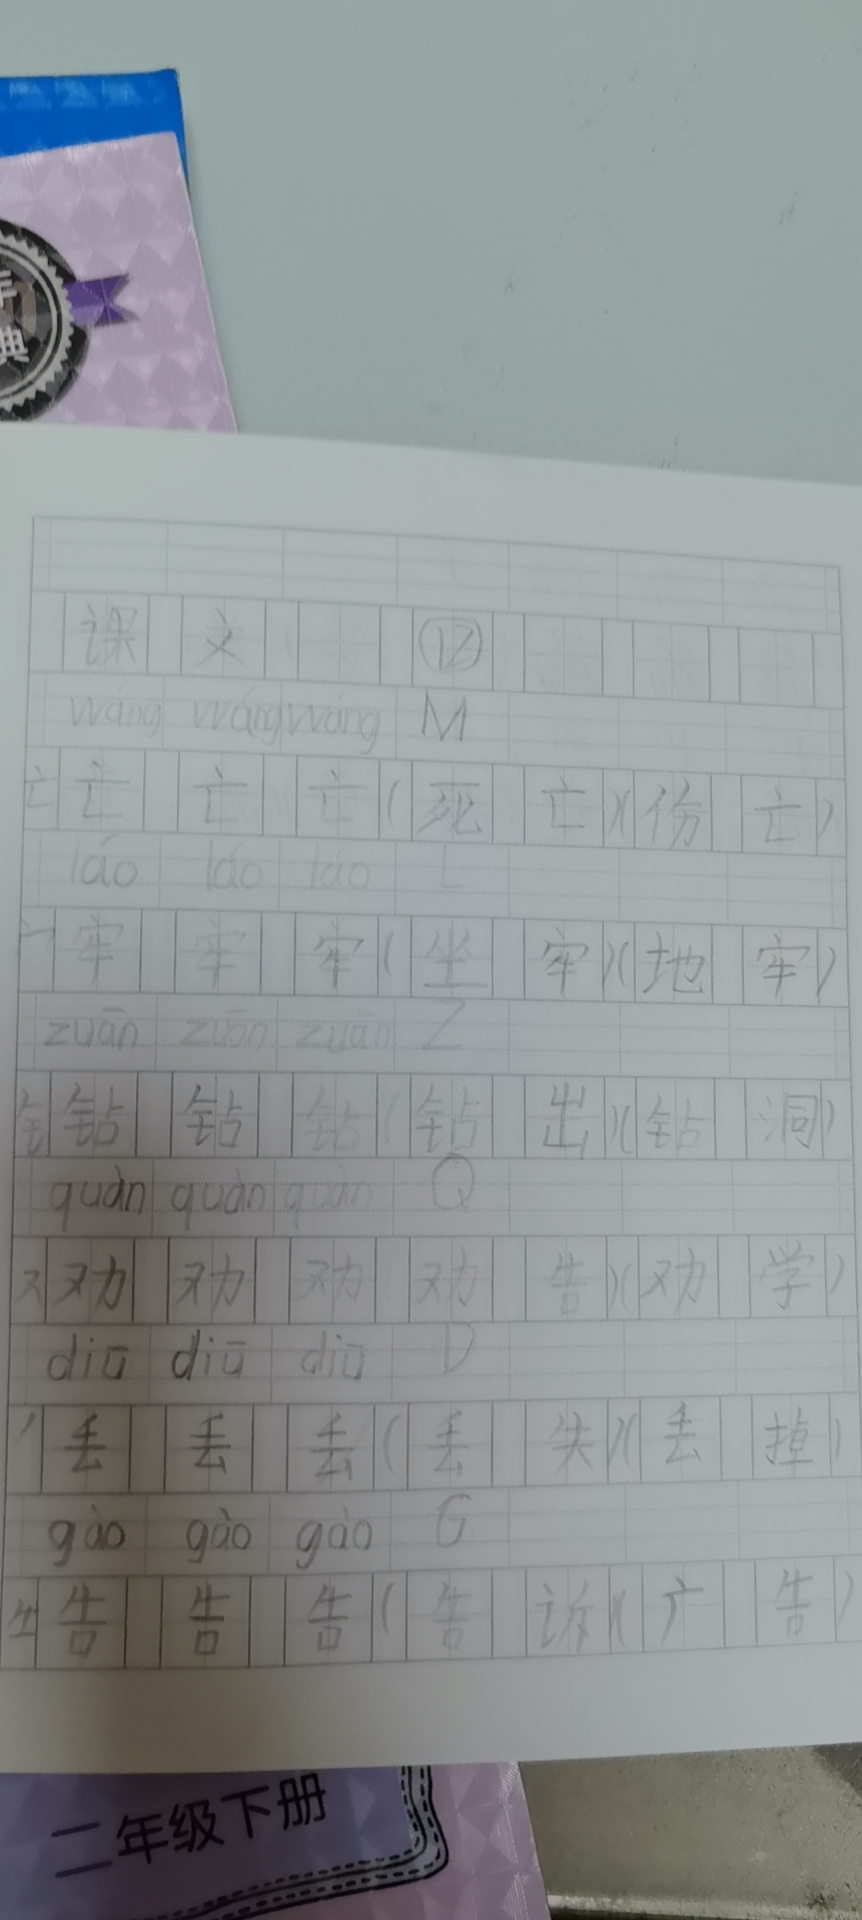 年
典
课文 ⑫
wáng wáng wáng M
亡 亡 亡 亡(死亡)(伤亡)
láo láo láo L
宀 牢 牢 牢(坐牢)(地牢)
zuān zuān zuān Z
钅 钻 钻 钻(钻出)(钻洞)
quàn quàn quàn Q
又 劝 劝 劝 劝告)(劝学)
diū diū diū D
丿 丢 丢 丢(丢失)(丢掉)
gào gào gào G
告 告 告(告诉(广告)
二年级下册